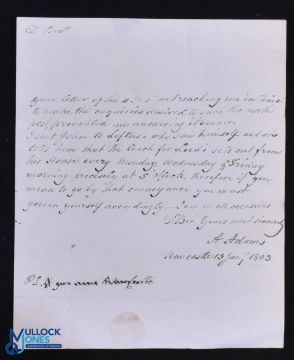 Dr Bror
your letter of the 11 Inst not reaching me in time
to make the enquiries desired to save the north
post, prevented me answering it sooner.
I sent John to Loftus's who saw himself and who
tells him that the Coach for Leeds sets out from
his House every Monday, Wednesday & Friday
morning precisely at 5 o'Clock, therefore if you
mean to go by that conveyance you must
govern yourself accordingly. I am on all occasions
Dr Bror Yours most sincerely
A Adams
Newcastle 13 Jany 1803
PS. If you come
MULLOCK
JONES